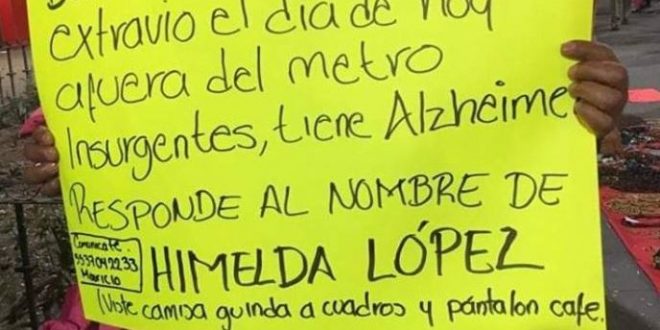 extravio el dia de hoy
afuera del metro
Insurgentes, tiene Alzheime
RESPONDE AL NOMBRE DE
Comunicate.
5537042233
Mauricio
HIMELDA LÓPEZ
Viste camisa guinda a cuadros y pántalon cafe.